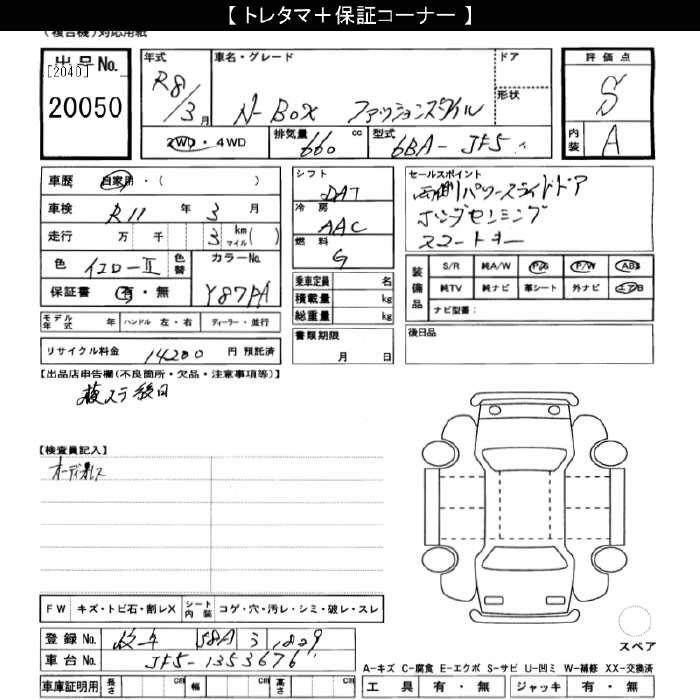 【 トレタマ＋保証コーナー 】
(複合機)対応用紙
出品No.
[2040]
20050
年式
R8/3月
車名・グレード
N-BOX ファッションスタイル
ドア
形状
2WD・4WD
排気量 660 cc
型式 6BA-JF5
評価点
S
内装 A
車歴 自家用・( )
車検 R11 年 3 月
走行 万 千 3 km マイル( )
色 イエロー II 色替 カラーNo.
保証書 有・無 Y87PA
シフト
DAT
冷房
AAC
燃料
G
乗車定員 名
積載量 kg
総重量 kg
セールスポイント
両側パワースライドドア
ホンダセンシング
スマートキー
装備品
S/R 純A/W P/S P/W ABS
純TV 純ナビ 革シート 外ナビ エアB
ナビ型番:
モデル年式 年 ハンドル 左・右 ディーラー・並行
リサイクル料金 14200 円 預託済
書類期限
月 日
後日品
【出品店申告欄(不良箇所・欠品・注意事項等)】
後日
【検査員記入】
オーディオレス
FW キズ・トビ石・割レX シート内装 コゲ・穴・汚レ・シミ・破レ・スレ
登録No. 58A 3 1809
車台No. JF5-1353676
スペア
A-キズ C-腐食 E-エクボ S-サビ U-凹ミ W-補修 XX-交換済
車庫証明用 長さ cm 幅 cm 高さ cm
工具 有・無 ジャッキ 有・無